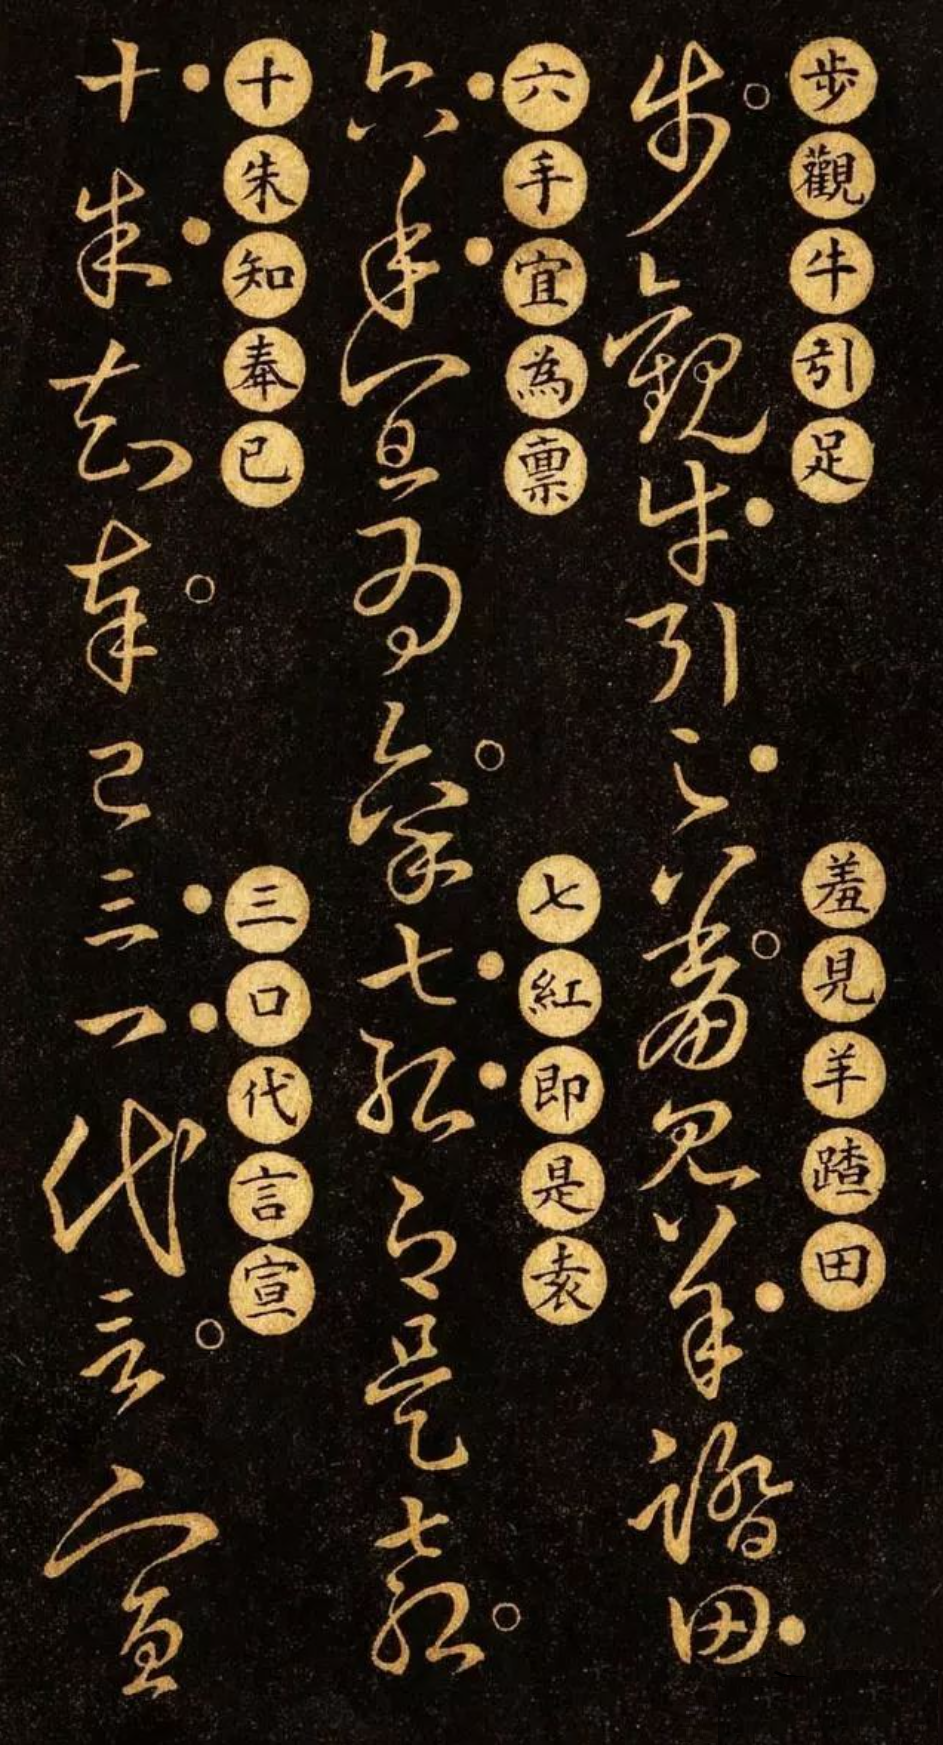 步觀牛引足
羞見羊蹅田
步觀牛引足羞見羊蹅田
六手宜為禀
七紅即是袁
六手宜為禀七紅即是袁
十朱知奉已
三口代言宣
十朱知奉已三口代言宣